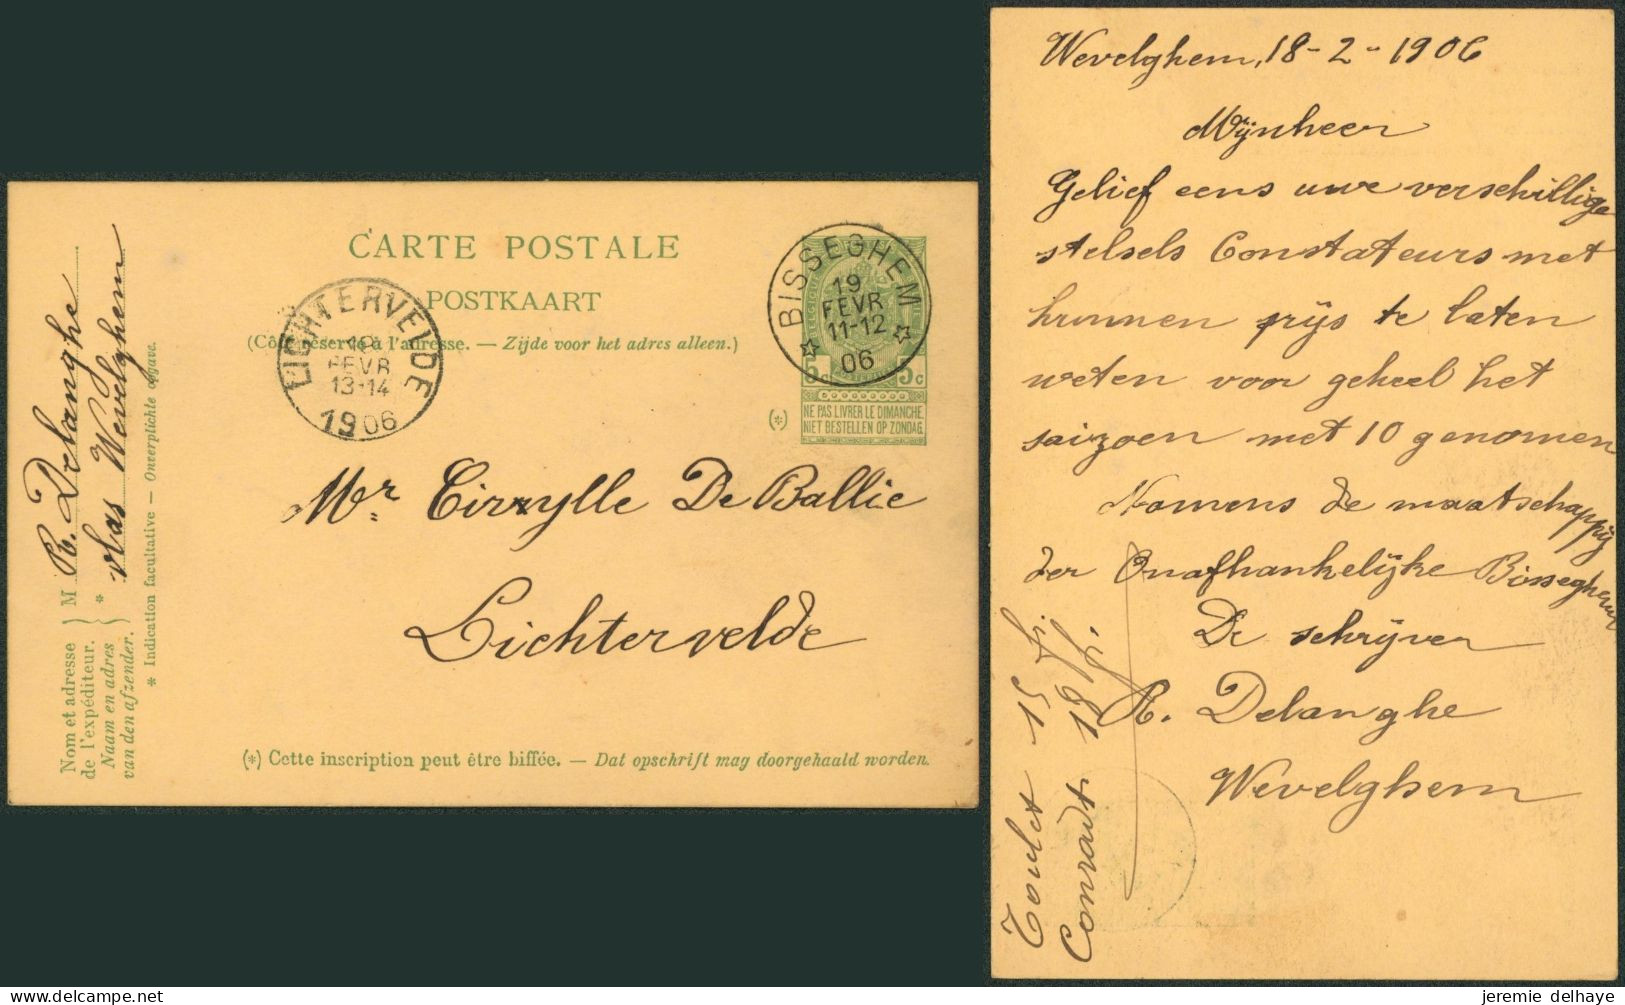 CARTE POSTALE
POSTKAART
(Côté réservé à l'adresse. — Zijde voor het adres alleen.)
BISSEGHEM
19
FEVR
11-12
06
LICHTERVELDE
19
FEVR
13-14
1906
5c 5c
NE PAS LIVRER LE DIMANCHE.
NIET BESTELLEN OP ZONDAG.
(*)
Mr. Ciryylle De Ballie
Lichtervelde
(*) Cette inscription peut être biffée. — Dat opschrift mag doorgehaald worden.
Nom et adresse
de l'expéditeur.
Naam en adres
van den afzender.
M R. Delanghe
* vlas Wevelghem
* Indication facultative — Onverplichte opgave.
Wevelghem, 18-2-1906
Mijnheer
Gelief eens uwe verschillige
stelsels Constateurs met
hunnen prijs te laten
weten voor geheel het
saizoen met 10 genomen
Namens de maatschappij
der Onafhankelijke Bisseghem
De schrijver
R. Delanghe
Wevelghem
Toulet 15 fr.
Conradt 18 fr.
jeremie delhaye